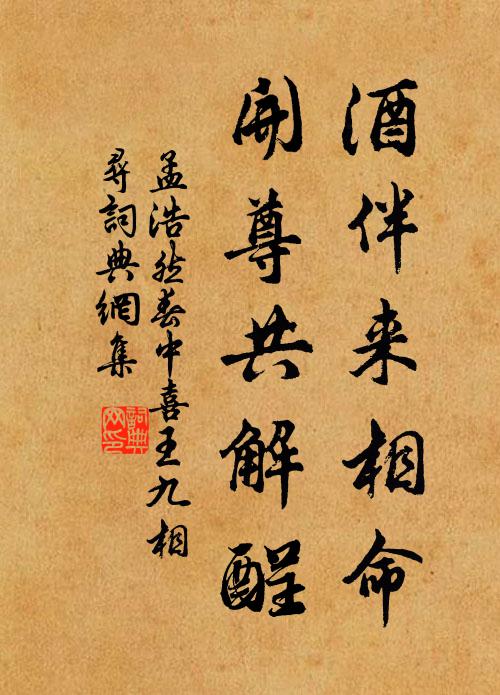 酒伴来相命
開尊共解酲
孟浩然春中喜王九相
尋詞典網集
詞典网印